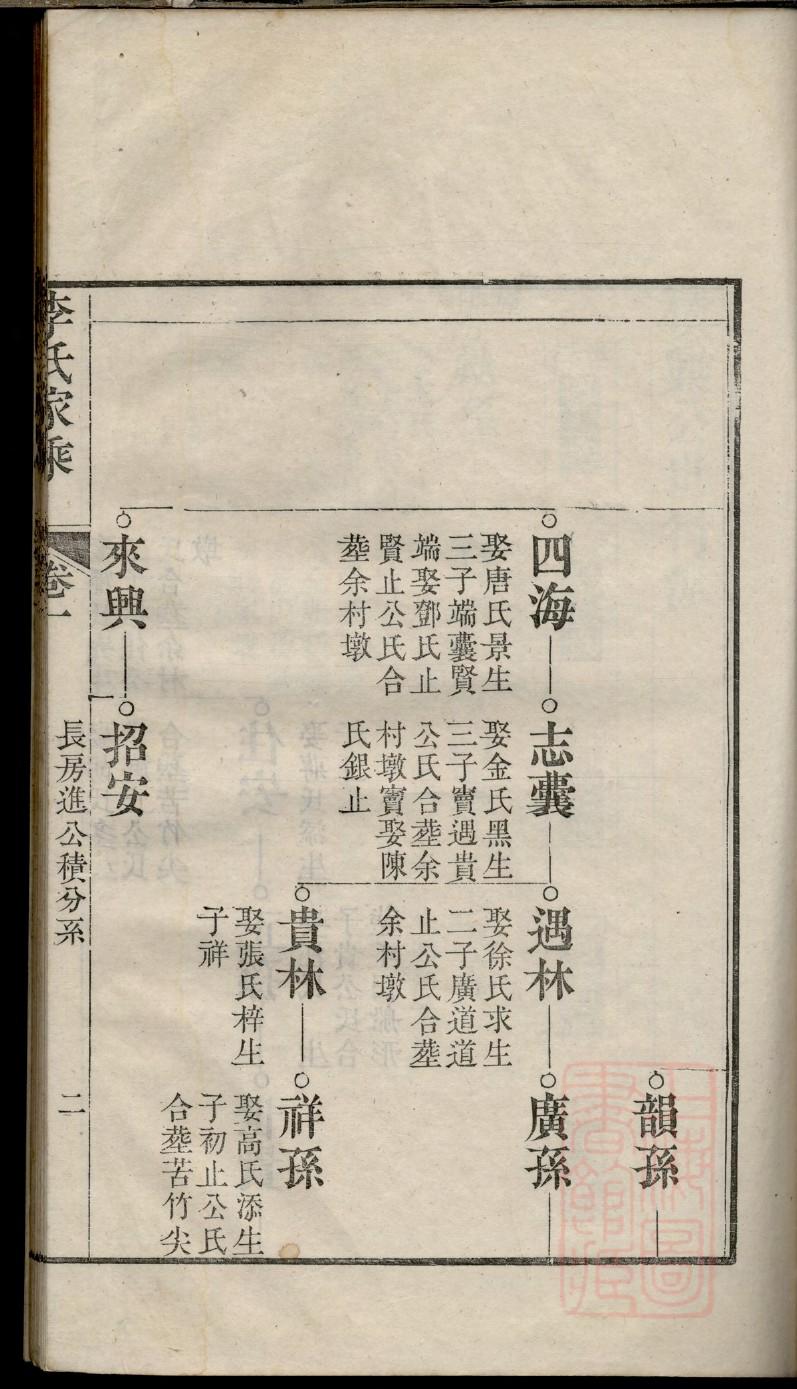 韻孫
四海
娶唐氏景生
三子端囊賢
端娶鄧氏止
賢止公氏合
塟余村墩
志囊
娶金氏黑生
三子竇遇貴
公氏合塟余
村墩竇娶陳
氏銀止
遇林
娶徐氏求生
二子廣道道
止公氏合塟
余村墩
廣孫
貴林
娶張氏梓生
子祥
祥孫
娶高氏添生
子初止公氏
合塟苦竹尖
來興
招安
李氏家乘
卷一
長房進公積分系
二